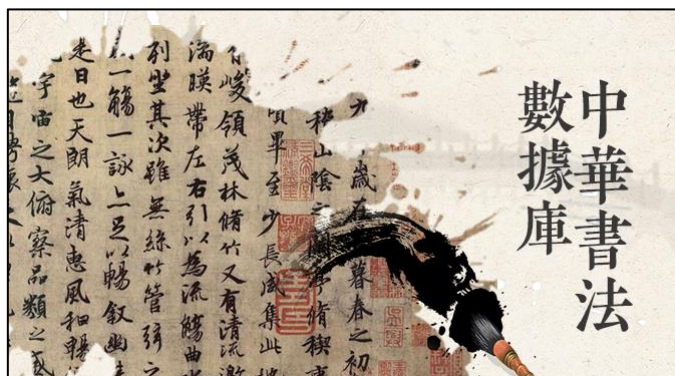 中華書法
數據庫
歲在暮春之初
稽山陰之亭脩稧
畢至少長咸集此地
峻領茂林脩竹又有清流激
湍暎帶左右引以為流觴曲
列坐其次雖無絲竹管弦之
一觴一詠亦足以暢敘幽
是日也天朗氣清惠風和暢
宇宙之大俯察品類之盛